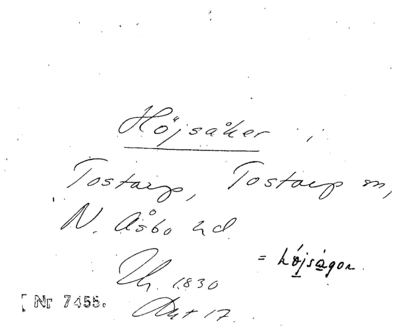 Höjsåker i
Tostarp, Tostarp sn,
N. Åsbo hd
= höjsågor.
Uh. 1830
Akt 17
Nr 7455.